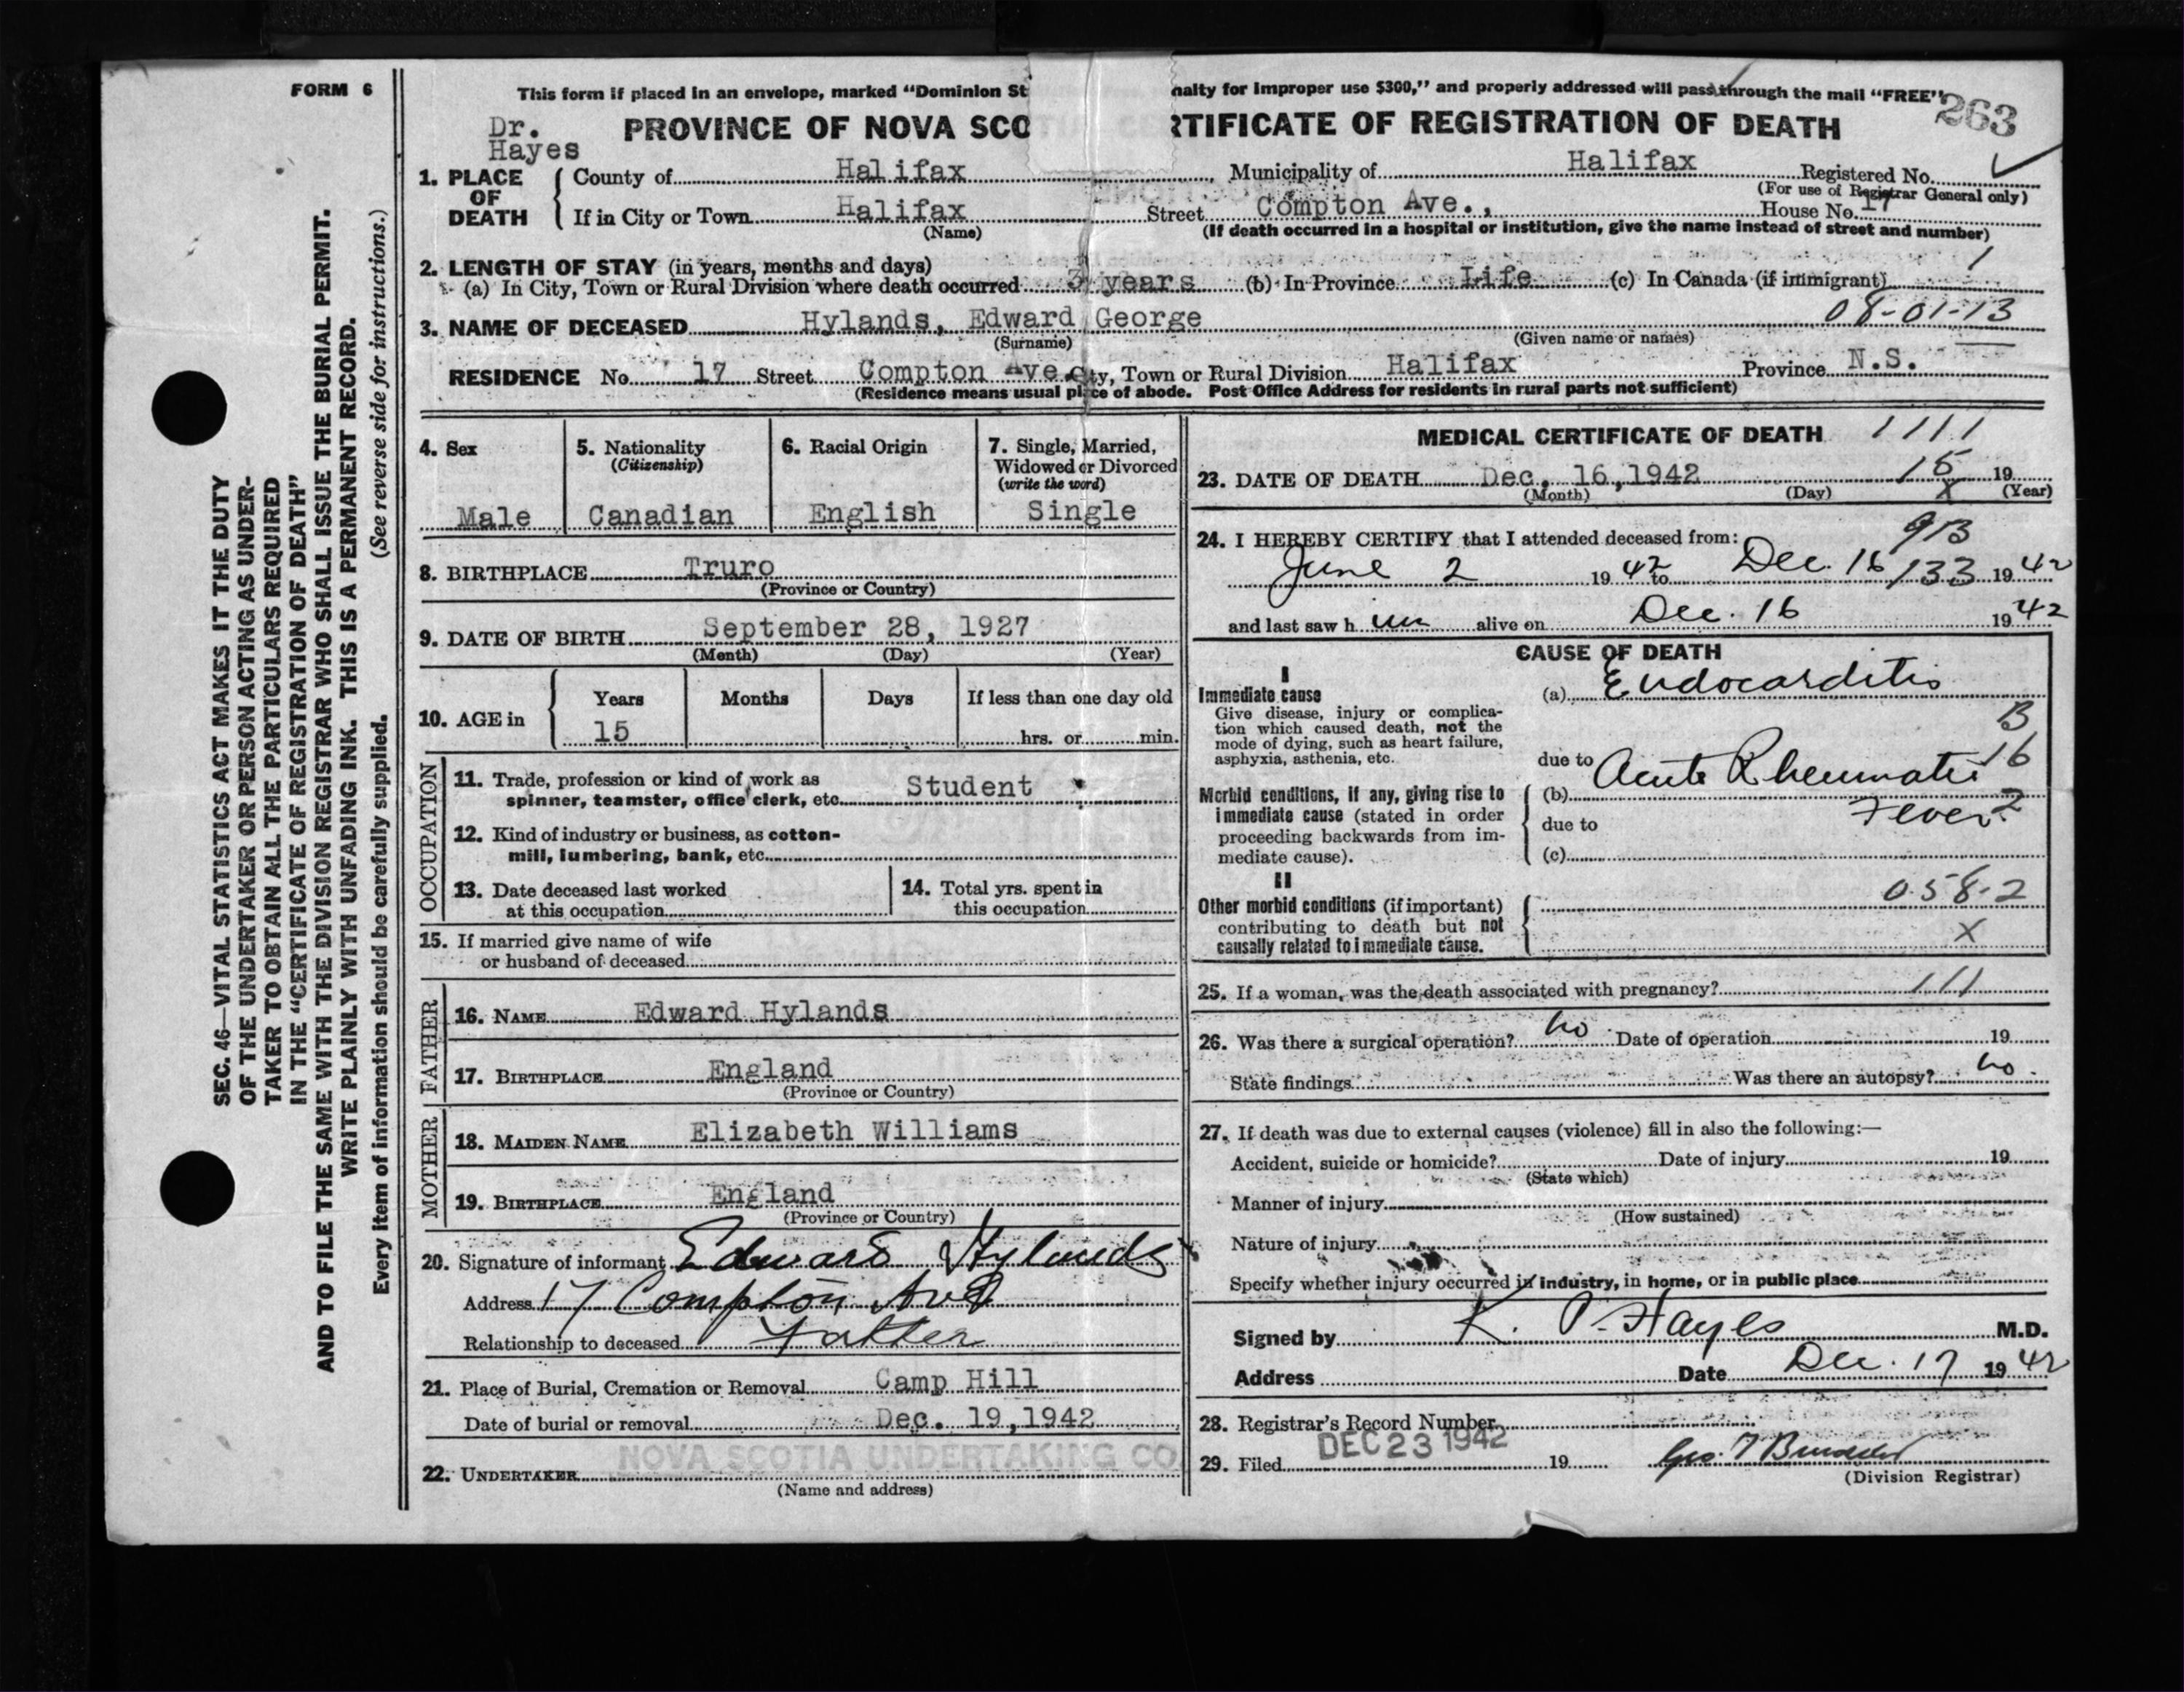 FORM 6
This form if placed in an envelope, marked "Dominion St nalty for improper use $300," and properly addressed will pass through the mail "FREE"
263
Dr.
Hayes
PROVINCE OF NOVA SCO RTIFICATE OF REGISTRATION OF DEATH
1. PLACE OF DEATH
County of Halifax Municipality of Halifax Registered No.
(For use of Registrar General only)
If in City or Town Halifax Street Compton Ave., House No. 17
(Name) (If death occurred in a hospital or institution, give the name instead of street and number)
2. LENGTH OF STAY (in years, months and days)
(a) In City, Town or Rural Division where death occurred 3 years (b) In Province Life (c) In Canada (if immigrant)
3. NAME OF DECEASED Hylands, Edward George 08-01-13
(Surname) (Given name or names)
RESIDENCE No. 17 Street Compton Ave. City, Town or Rural Division Halifax Province N.S.
(Residence means usual place of abode. Post Office Address for residents in rural parts not sufficient)
4. Sex
Male
5. Nationality
(Citizenship)
Canadian
6. Racial Origin
English
7. Single, Married,
Widowed or Divorced
(write the word)
Single
8. BIRTHPLACE Truro
(Province or Country)
9. DATE OF BIRTH September 28, 1927
(Month) (Day) (Year)
10. AGE in Years Months Days If less than one day old
15 hrs. or min.
OCCUPATION
11. Trade, profession or kind of work as
spinner, teamster, office clerk, etc. Student
12. Kind of industry or business, as cotton-
mill, lumbering, bank, etc.
13. Date deceased last worked
at this occupation
14. Total yrs. spent in
this occupation
15. If married give name of wife
or husband of deceased
FATHER
16. NAME Edward Hylands
17. BIRTHPLACE England
(Province or Country)
MOTHER
18. MAIDEN NAME Elizabeth Williams
19. BIRTHPLACE England
(Province or Country)
20. Signature of informant Edward Hylands
Address 17 Compton Ave
Relationship to deceased Father
21. Place of Burial, Cremation or Removal Camp Hill
Date of burial or removal Dec. 19, 1942
22. UNDERTAKER NOVA SCOTIA UNDERTAKING CO
(Name and address)
MEDICAL CERTIFICATE OF DEATH 1111
23. DATE OF DEATH Dec. 16, 1942 15 19
(Month) (Day) X (Year)
24. I HEREBY CERTIFY that I attended deceased from: 9B
June 2 1942 to Dec. 16 133 1942
and last saw h im alive on Dec. 16 1942
CAUSE OF DEATH
I
Immediate cause
Give disease, injury or complica-
tion which caused death, not the
mode of dying, such as heart failure,
asphyxia, asthenia, etc.
(a) Endocarditis
B
16
2
due to
(b) Acute Rheumatic
Fever
Morbid conditions, if any, giving rise to
immediate cause (stated in order
proceeding backwards from im-
mediate cause).
due to
(c)
II
Other morbid conditions (if important)
contributing to death but not
causally related to immediate cause.
058-2
X
25. If a woman, was the death associated with pregnancy? 111
26. Was there a surgical operation? no Date of operation 19
State findings Was there an autopsy? no
27. If death was due to external causes (violence) fill in also the following:—
Accident, suicide or homicide? Date of injury 19
(State which)
Manner of injury
(How sustained)
Nature of injury
Specify whether injury occurred in industry, in home, or in public place
Signed by K. P. Hayes M.D.
Address Date Dec. 17 1942
28. Registrar's Record Number
29. Filed DEC 23 1942 19
(Division Registrar)
SEC. 46—VITAL STATISTICS ACT MAKES IT THE DUTY
OF THE UNDERTAKER OR PERSON ACTING AS UNDER-
TAKER TO OBTAIN ALL THE PARTICULARS REQUIRED
IN THE "CERTIFICATE OF REGISTRATION OF DEATH"
AND TO FILE THE SAME WITH THE DIVISION REGISTRAR WHO SHALL ISSUE THE BURIAL PERMIT.
WRITE PLAINLY WITH UNFADING INK. THIS IS A PERMANENT RECORD.
Every item of information should be carefully supplied. (See reverse side for instructions.)